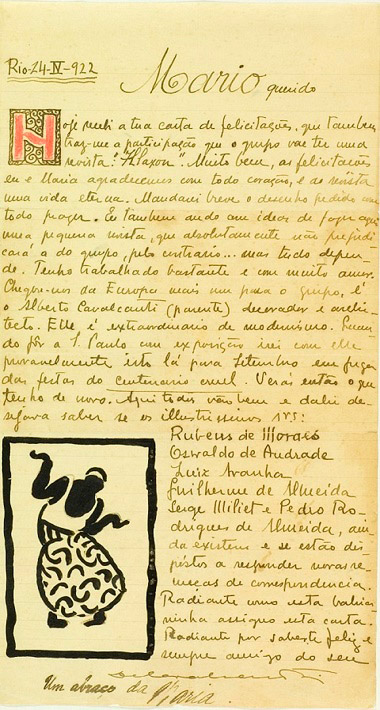 Rio-24-IV-922
Mario querido
Hoje recebi a tua carta de felicitações, que tambem
traz-me a participação que o grupo vae ter uma
revista: "Klaxon". Muito bem, as felicitações
eu e Maria agradecemos com todo coração, e á revista
uma vida eterna. Mandarei breve o desenho pedido com
todo prazer. Eu tambem ando com ideas de fazer aqui
uma pequena revista, que absolutamente não prejudi
cará a do grupo, pelo contrario... mas tudo depen-
de. Tenho trabalhado bastante e com muito amor.
Chegou-nos da Europa mais um para o grupo, é
o Alberto Cavalcanti (parente) decorador e archi-
tecto. Elle é extraordinario de modernismo. Quan-
do fôr a S. Paulo com exposição irei com elle
provavelmente isto lá para Setembro em
das festas do centenario cruel. Verás então o que
tenho de novo. Aqui todos vão bem e dahi de-
sejava saber se os illustrissimos srs:
Rubens de Moraes
Oswaldo de Andrade
Luiz Aranha
Guilherme de Almeida
Serge Milliet e Pedro Ro-
drigues de Almeida, ain
da existem e se estão dis
póstos a responder novas re-
messas de correspondencia.
Radiante como esta bahiana
minha assigno esta carta.
Radiante por saberte feliz e
sempre amigo do seu
Um abraço da Maria.